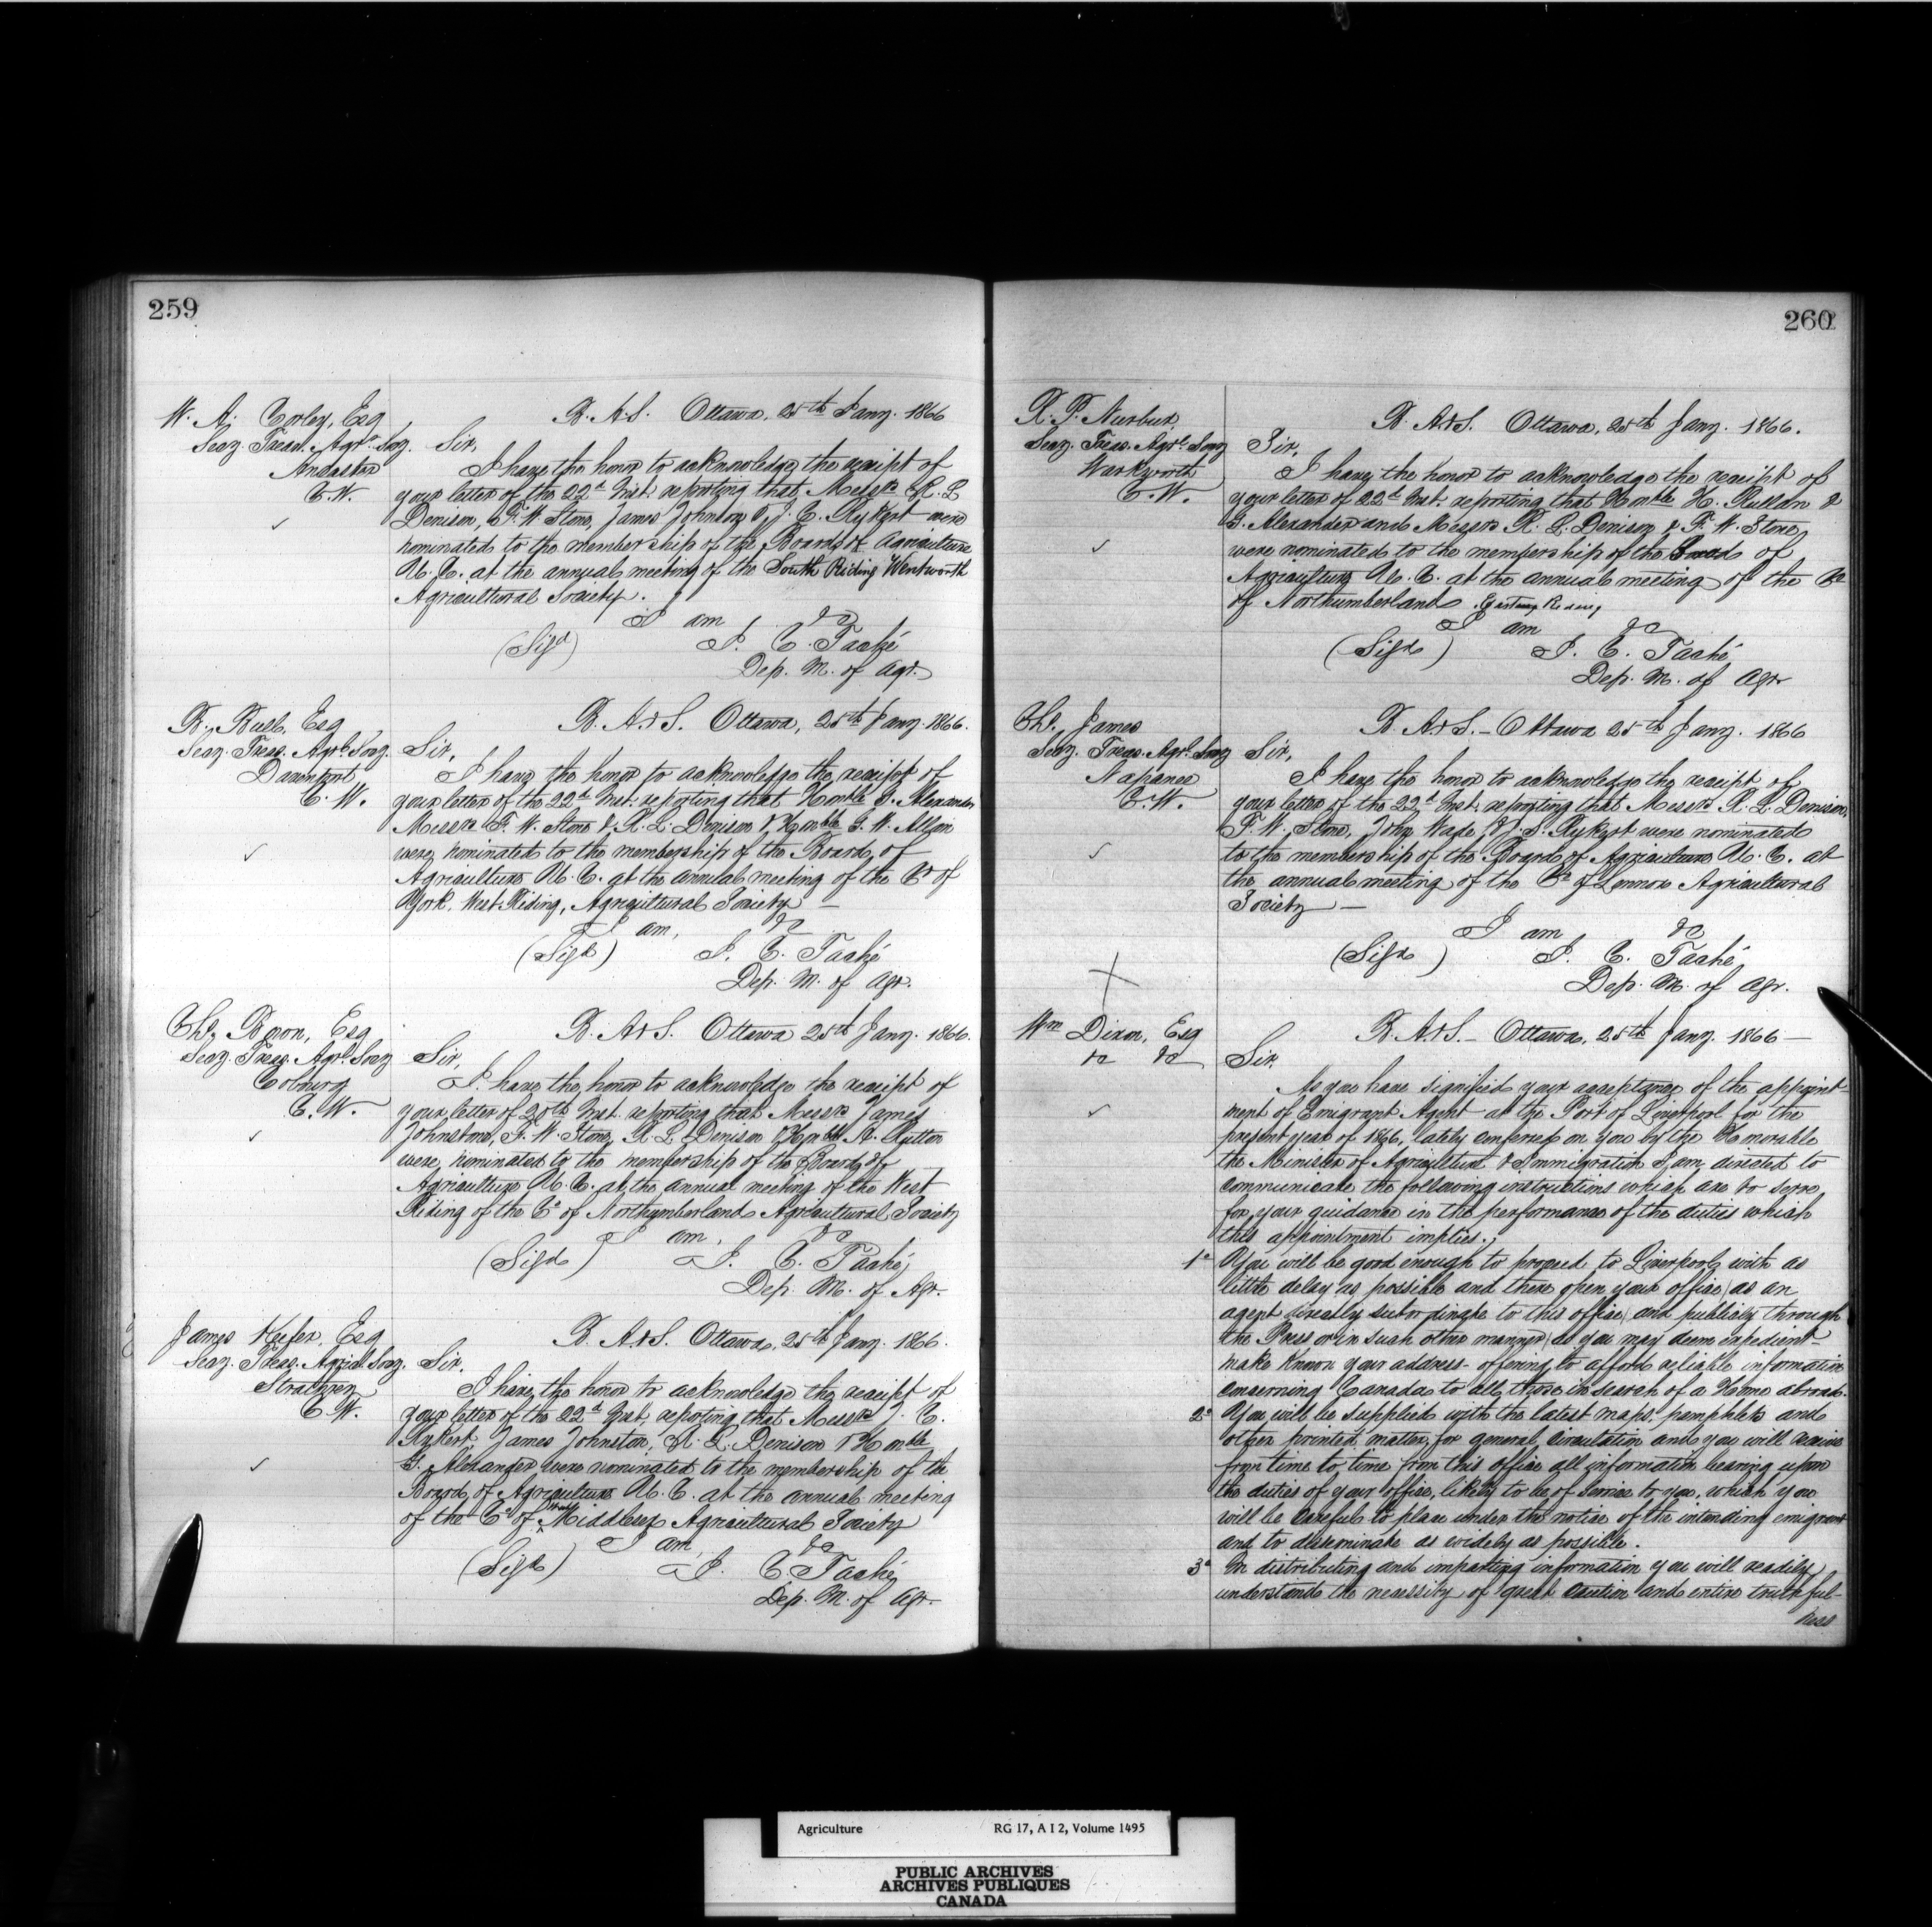 259
W. A. Corley, Esq
Secy. Treas. Agrl. Socy.
Ancaster
C.W.
B. A & S. Ottawa, 25th Jany. 1866
Sir,
I have the honor to acknowledge the receipt of
your letter of the 22d Inst. reporting that Messrs R. L
Denison, F. W. Stone, James Johnson & J. C. Rykert were
nominated to the membership of the Board of Agriculture
U. C. at the annual meeting of the South Riding Wentworth
Agricultural Society.
I am &c
(Sigd) J. C. Taché
Dep. M. of Agr.
B. Bull, Esq
Secy. Treas. Agrl. Socy.
Davenport
C. W.
B. A & S. Ottawa, 25th Jany. 1866.
Sir,
I have the honor to acknowledge the receipt of
your letter of the 22d Inst. reporting that Honble G. Alexander
Messrs F. W. Stone & R. L. Denison & Honble G. W. Allan
were nominated to the membership of the Board of
Agriculture U. C. at the annual meeting of the Co of
York, West Riding, Agricultural Society —
I am, &c
(Sigd) J. C. Taché
Dep. M. of Agr.
Chs. Bourn, Esq
Secy. Treas. Agrl. Socy
Cobourg
C. W.
B. A & S. Ottawa 25th Jany. 1866.
Sir,
I have the honor to acknowledge the receipt of
your letter of 20th Inst. reporting that Messrs James
Johnstone, F. W. Stone, R. L. Denison & Honble H. Rutton
were nominated to the membership of the Board of
Agriculture U. C. at the annual meeting of the West
Riding of the Co of Northumberland Agricultural Society
I am, &c
(Sigd) J. C. Taché
Dep. M. of Agr.
James Keefer, Esq
Secy. Treas. Agrial Socy.
Strathroy
C. W.
B. A & S. Ottawa, 25th Jany. 1866.
Sir,
I have the honor to acknowledge the receipt of
your letter of the 22d Inst. reporting that Messrs J. C.
Rykert, James Johnston, R. L. Denison & Honble
G. Alexander were nominated to the membership of the
Board of Agriculture U. C. at the annual meeting
of the Co of West Middlesex Agricultural Society
I am, &c
(Sigd) J. C. Taché
Dep. M. of Agr.
260
R. P. Hurlbut
Secy. Treas. Agrl. Socy
Warkworth
C. W.
B. A & S. Ottawa, 25th Jany. 1866.
Sir,
I have the honor to acknowledge the receipt of
your letter of 22d Inst. reporting that Honble H. Ruttan &
G. Alexander and Messrs R. L. Denison & F. W. Stone,
were nominated to the membership of the Board of
Agriculture U. C. at the annual meeting of the Co
of Northumberland East Riding
I am &c
(Sigd) J. C. Taché
Dep. M. of Agr
Chs. James
Secy. Treas. Agrl. Socy
Napanee
C. W.
B. A & S. — Ottawa 25th Jany. 1866
Sir,
I have the honor to acknowledge the receipt of
your letter of the 22d Inst. reporting that Messrs R. L. Denison,
F. W. Stone, John Wade, & J. S. Rykert were nominated
to the membership of the Board of Agriculture U. C. at
the annual meeting of the Co of Lennox Agricultural
Society —
I am &c
(Sigd) J. C. Taché
Dep. M. of Agr.
Wm Dixon, Esq
&c &c
B. A & S. — Ottawa, 25th Jany. 1866 —
Sir.
As you have signified your acceptance of the appoint-
ment of Emigrant Agent at the Port of Liverpool for the
present year of 1866, lately conferred on you by the Honorable
the Minister of Agriculture & Immigration I am directed to
communicate the following instructions which are to serve
for your guidance in the performance of the duties which
this appointment implies.
1o You will be good enough to proceed to Liverpool with as
little delay as possible and there open your office, as an
agent directly subordinate to this office, and publicly through
the Press or in such other manner, as you may deem expedient
make known your address — offering to afford reliable information
concerning Canada to all those in search of a Home abroad.
2o You will be supplied with the latest maps, pamphlets and
other printed matter, for general circulation and you will receive
from time to time from this office all information bearing upon
the duties of your office, likely to be of service to you, which you
will be careful to place under the notice of the intending emigrant
and to disseminate as widely as possible.
3o In distributing and imparting information you will readily
understand the necessity of great caution and entire truthful-
ness
Agriculture RG 17, A I 2, Volume 1495
PUBLIC ARCHIVES
ARCHIVES PUBLIQUES
CANADA